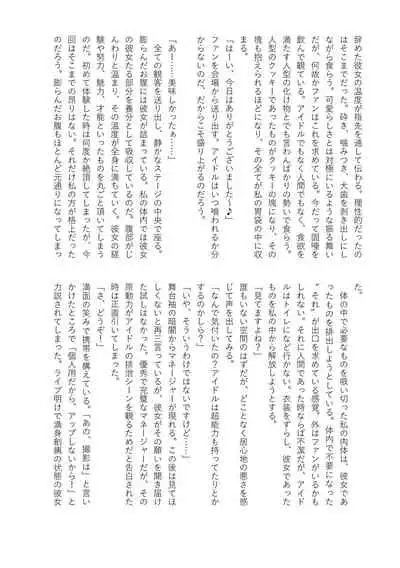 辞めた彼女の温度が指先を通して伝わる。理性的だったの
はそこまでだった。砕き、噛みつき、犬歯を剥き出しにし
ながら食らう。可愛らしさとは対極にいるような振る舞い
だが、何故かファンはこれを求めている。今だって固唾を
飲んで観ている。アイドルでもなく人間でもなく、食欲を
満たす人型の化け物とでも言わんばかりの勢いで食らう。
人型のクッキーであったものがクッキーの塊になり、その
塊も抱えられるほどになり、その全てが私の胃袋の中に収
まる。
「はーい、今日はありがとうございました〜♪」
ファンを会場から送り出す。アイドルはいつ喰われるか分
からないのだ、だからこそ盛り上がるのだろう。
「あー……美味しかったぁ……」
全ての観客を送り出し、静かなステージの中央で座る。
膨らんだお腹には彼女が詰まっている。私の体内では彼女
の彼女たる部分を養分として吸収しているのだ。腹部がじ
んわりと温まり、その温度が全身に満ちていく。彼女の経
験や努力、魅力、才能といったものを丸ごと頂いてしまう
のだ。初めて体験した時は何度か絶頂してしまったが、今
回はそこまでの昂りはない。それだけ私の方が格上だった
のだろう。膨らんだお腹もほとんど元通りになってしまっ
た。
体の中で必要なものを吸い切った私の肉体は、彼女であ
ったものを排出しようとしている。体内で不要になった
“それ”が出口を求めている感覚、外はファンがいるかも
しれない。それに人間であった時ならば不潔だが、アイド
ルはトイレになど行かない。衣装をずらし、彼女であった
ものを私の中から解放しようとする。
「見てますよね？」
誰もいない空間のはずだが、どことなく居心地の悪さを感
じて声を出してみる。
「なんで気付いたの？アイドルは超能力も持ってたりとか
するのかしら？」
「いや、そういうわけではないですけど……」
舞台袖の暗闇からマネージャーが現れる。この後は見てほ
しくないと再三言っているが、彼女がその願いを聞き届け
た試しはなかった。優秀で完璧なマネージャーだが、その
原動力がアイドルの排泄シーンを観るためだと告白された
時は正直引いてしまった。
「さ、どうぞ！」
満面の笑みで携帯を構えている。「あの、撮影は」と言い
かけたところで「個人用だから、アップしないから！」と
力説されてしまった。ライブ明けで満身創痍の状態の彼女